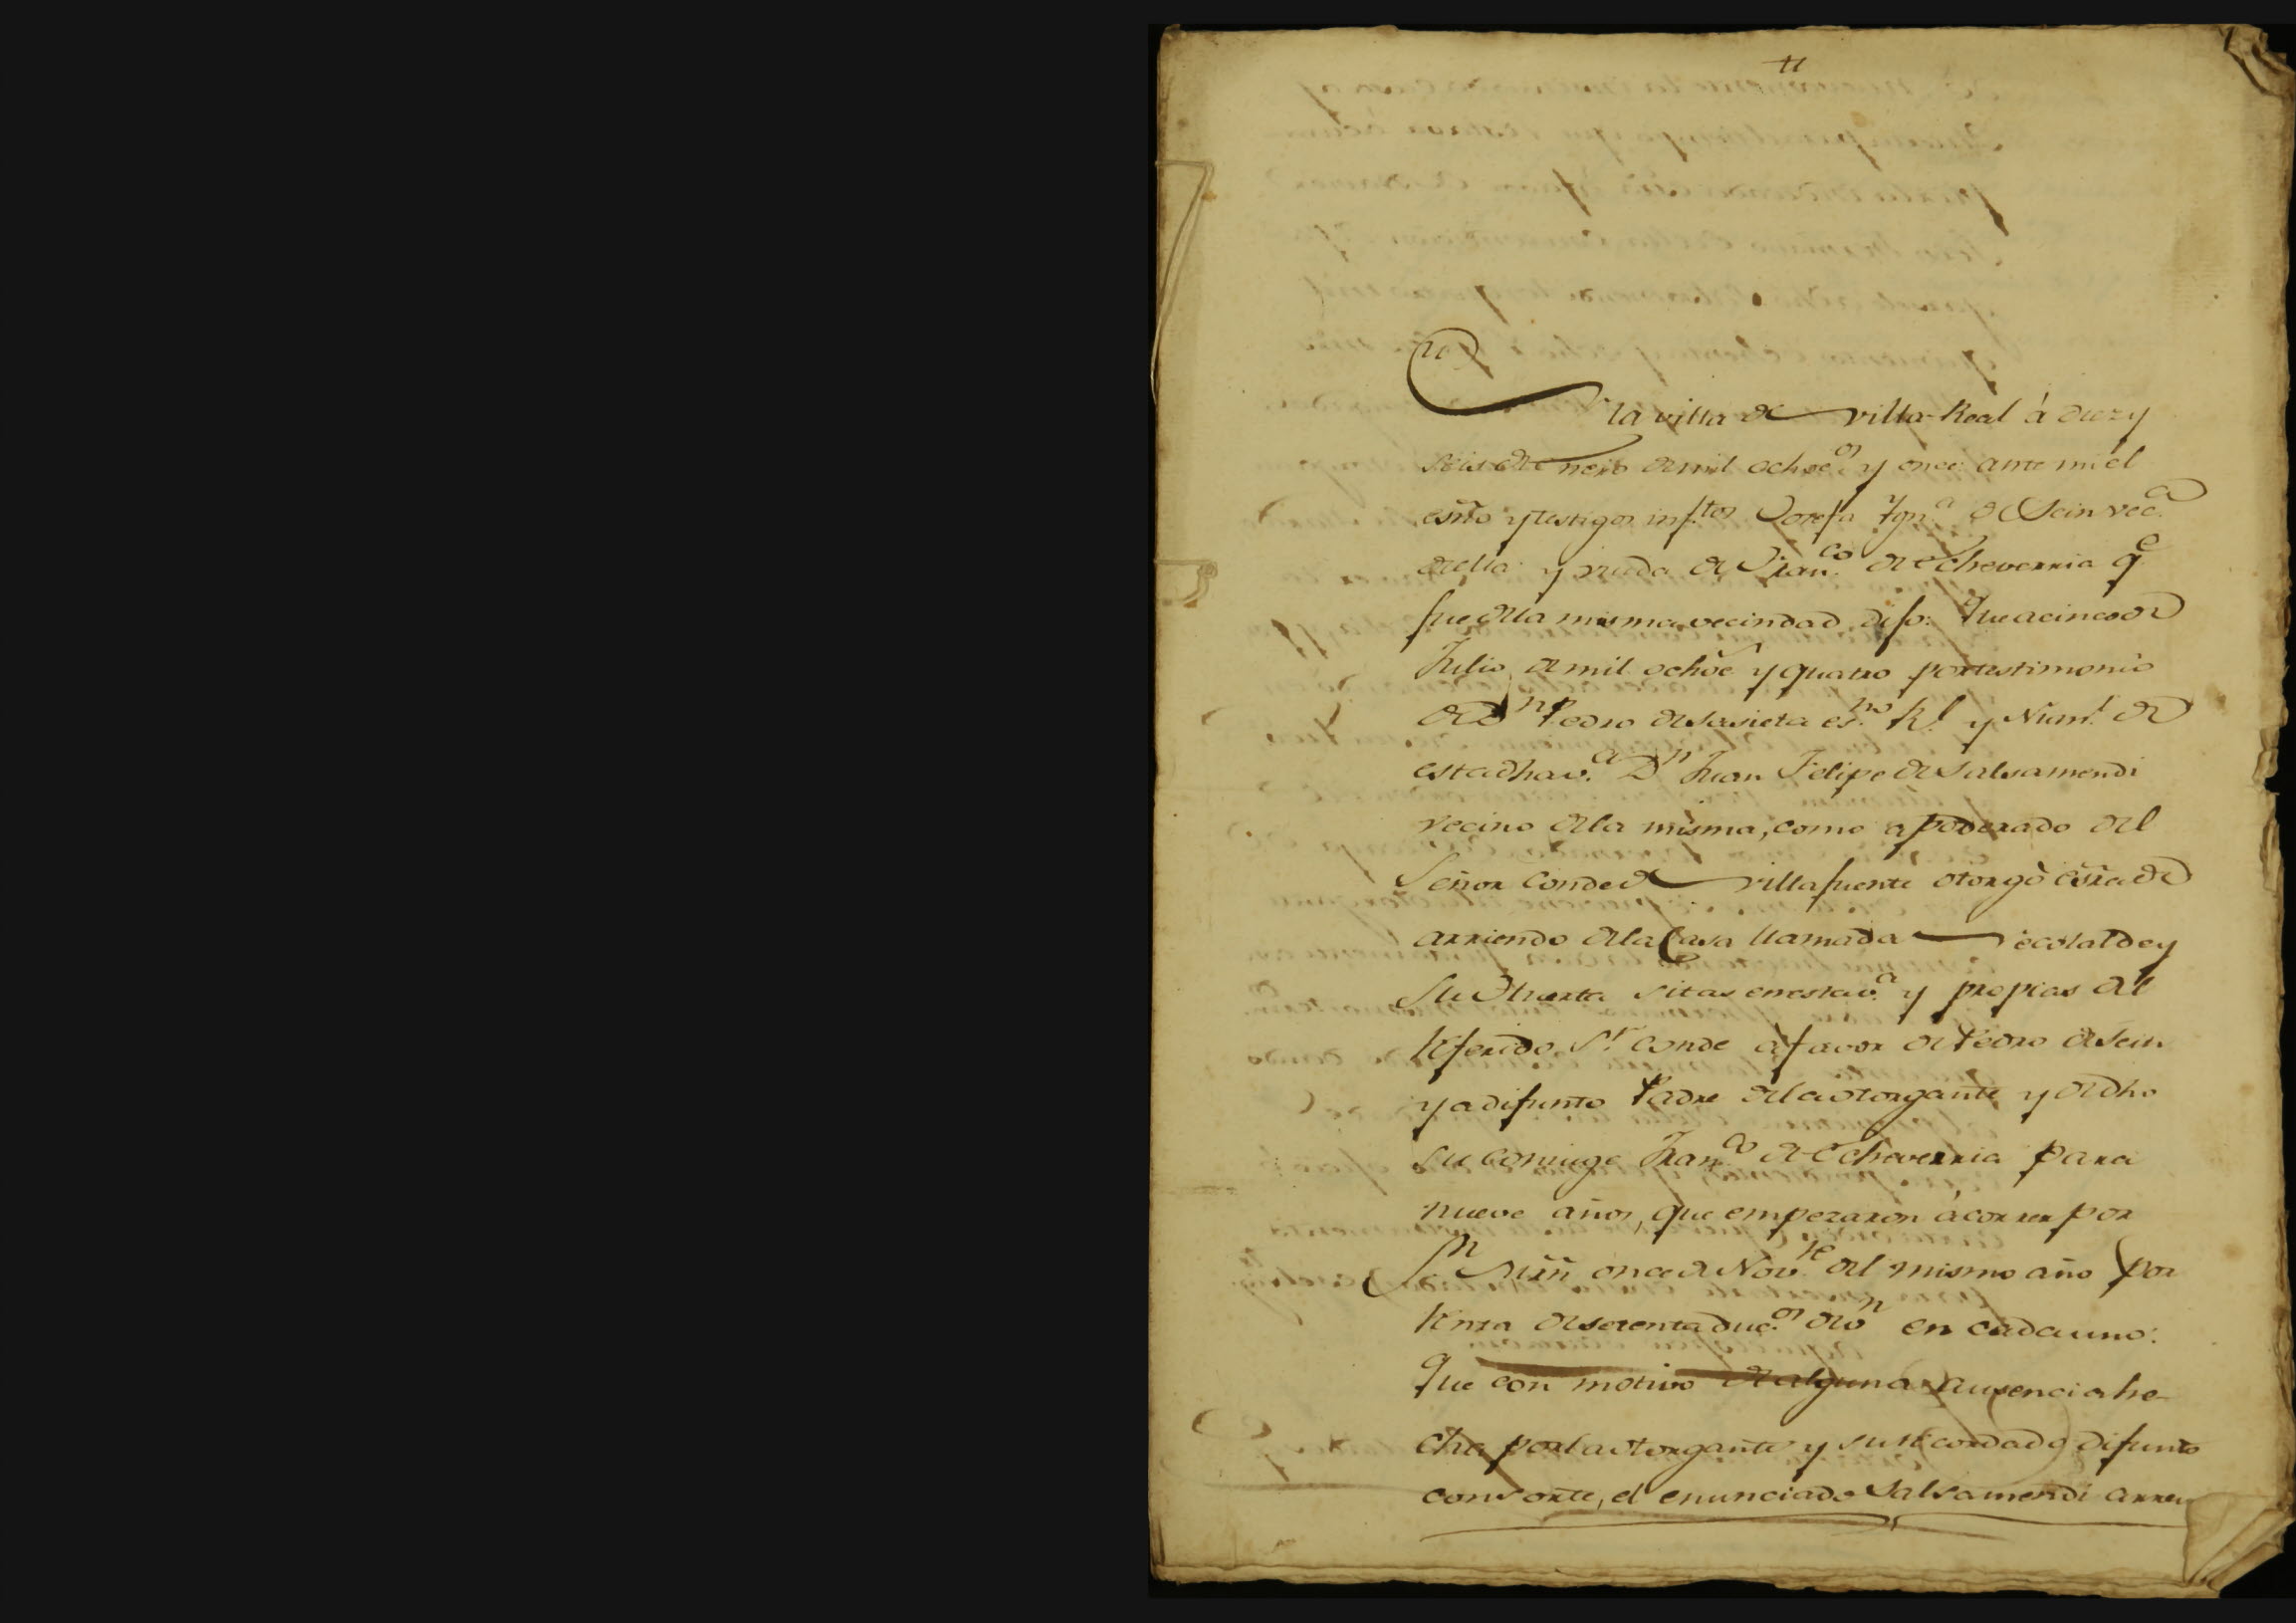 En
la villa de villa-Real á diez y
seis de Enero de mil ochoc.os y once: ante mi el
esño y testigos inf.tos Josefa Ygn.a de Sein vec.a
de ella y viuda de Fran.co de Echeverria q.e
fue de la misma vecindad dijo: Que a cinco de
Julio de mil ochoc.s y quatro por testimonio
de D.n Pedro de Sasieta es.no R.l y Num.l de
esta dha v.a D.n Juan Felipe de Salsamendi
vecino de la misma, como apoderado del
Señor Conde de villafuente otorgò esr̃a de
arriendo de la Casa llamada ecolalde y
su Huerta sitas en esta v.a y propias del
Referido S.r Conde á favor de Pedro de Sein
ya difunto Padre de la otorgante y de dho
su conjuge Fran.co de Echeverria para
nueve años, que empezaron á correr por
S.n Mrñ once de Nov.re del mismo año por
Renta de setenta duc.os de v.n en cada uno:
Que con motivo de alguna ausencia he-
cha por la otorgante y su recordado difunto
consorte, el enunciado Salsamendi arren